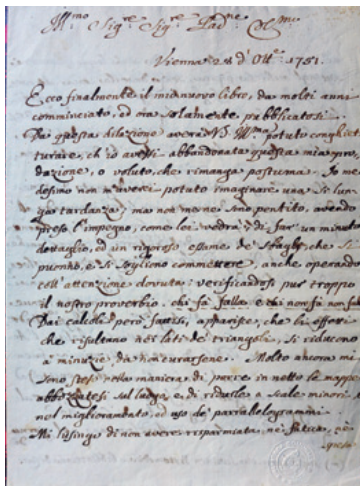 Ill:mo Sig:re Sig:re Pad:ne Col:mo
Vienna 28 d'Ott:e 1751.
Ecco finalmente il mio nuovo libro, da molti anni
comminciato, ed ora solamente pubblicatosi.
Da questa dilazione averà V.S. Ill:ma potuto conghiet
turare, ch'io avessi abbandonata questa mia pro,
dazione, o voluto, che rimanga postuma. Io me
desimo non m'averei potuto imaginare una sì lun
ga tardanza; ma non me ne sono pentito, avendo
preso l'impegno, come lei vedrà, di far un minuto
dettaglio, ed in rigoroso essame de' sbagli, che si
puonno, e si sogliono commettere, anche operando
coll'attenzione dovuta: verificandosi pur troppo
il nostro proverbio. chi fà falla e chi non fà non fal
Dai calcoli però fattisi, apparisce, che gli effetti
che risultano nei lati de' triangoli, si riducono
a minuzie da non curarsene. Molto ancora mi
sono steso nella maniera di porre in netto le mappe
abbozzatesi sul luogo, e di ridurle a scale minori,
nel miglionandato, ed uso de' parrallelogrammi.
Mi lusingo di non avere risparmiata, nè fatica, nè